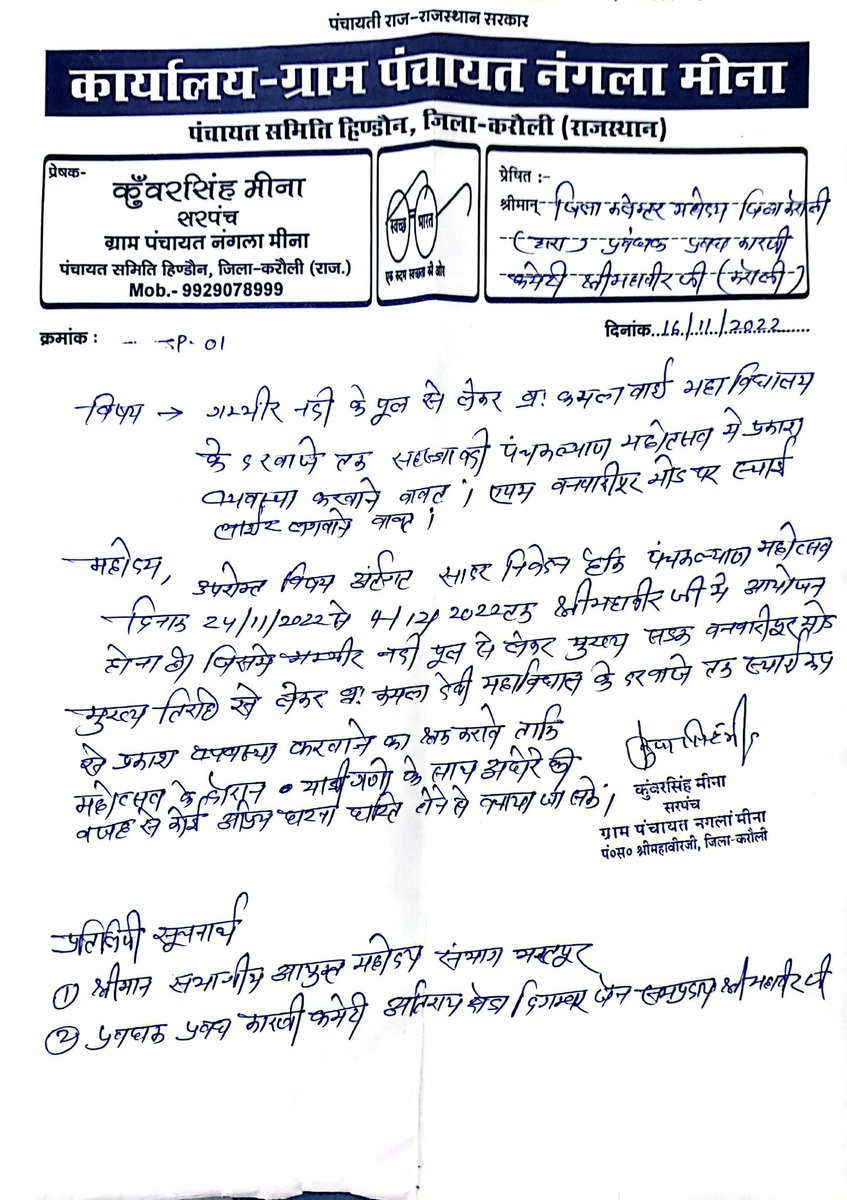 पंचायती राज-राजस्थान सरकार
कार्यालय-ग्राम पंचायत नंगला मीना
पंचायत समिति हिण्डौन, जिला-करौली (राजस्थान)
प्रेषक-
कुँवरसिंह मीना
सरपंच
ग्राम पंचायत नंगला मीना
पंचायत समिति हिण्डौन, जिला-करौली (राज.)
Mob.- 9929078999
स्वच्छ भारत
एक कदम स्वच्छता की ओर
प्रेषित :-
श्रीमान् जिला कलेक्टर महोदय जिला करौली
(द्वारा) प्रबंधक प्रबन्ध कारणी
कमेटी श्री महावीर जी (करौली)
क्रमांक : SP-01
दिनांक 16/11/2022
विषय → गम्भीर नदी के पूल से लेकर ब्र. कमला बाई महा विधालय
के दरवाजे तक पंचकल्याण महोत्सव मे प्रकाश
व्यवस्था करवाने बाबत । एवम बनवारीपुर मोड पर स्थाई
लाईट लगवाने बाबत ।
महोदय,
उपरोक्त विषय अंर्तगत सादर निवेदन है कि पंचकल्याण महोत्सव
दिनाक 24/11/2022 से 4/12/2022 तक श्री महावीर जी मे आयोजन
होना है जिसमे गम्भीर नदी पूल से लेकर मुख्य सडक बनवारीपुर मोड
मुख्य तिराहे से लेकर ब्र. कमला देवी महाविधाल के दरवाजे तक स्थाई रूप
से प्रकाश व्यवस्था करवाने का करावे ताकि
महोत्सव के दौरान यात्रीगणो के साथ अंधेरे की
वजह से कोई अप्रिय घटना घटित होने से बचाया जा सके ।
कुंवरसिंह मीना
सरपंच
ग्राम पंचायत नगलां मीना
पं०स० श्रीमहावीरजी, जिला-करौली
प्रतिलिपी सूचनार्थ
① श्रीमान संभागीय आयुक्त महोदय संभाग भरतपुर
② प्रबंधक प्रबन्ध कारणी कमेटी अतिशय क्षेत्र दिगम्बर जैन श्री महावीर जी